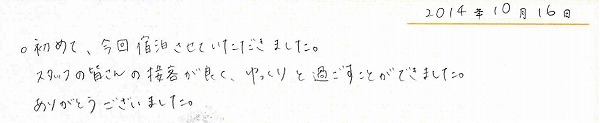 2014年10月16日
○初めて、今回宿泊させていただきました。
スタッフの皆さんの接客が良く、ゆっくりと過ごすことができました。
ありがとうございました。